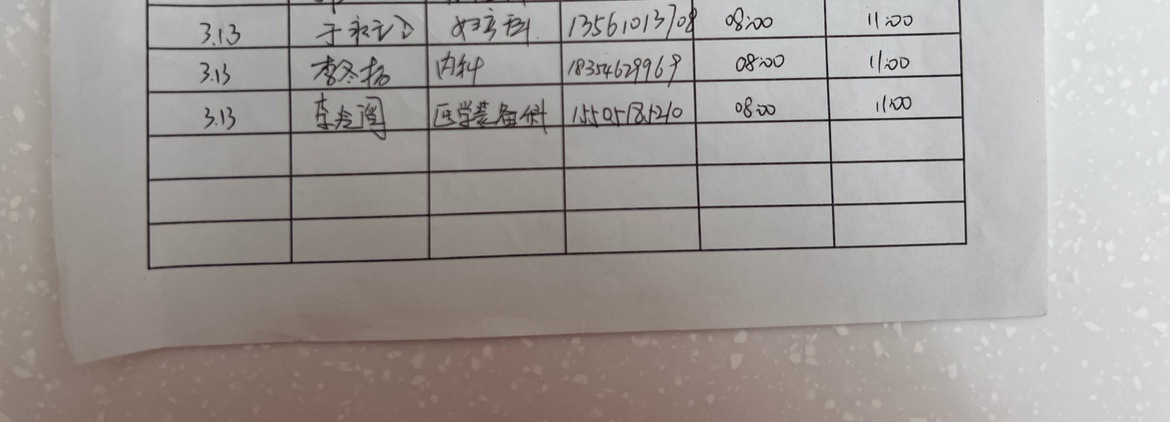 3.13 于 妇产科 13561013708 08:00 11:00
3.13 李冬梅 内科 18354629969 08:00 11:00
3.13 李 医学装备科 15505185210 08:00 11:00